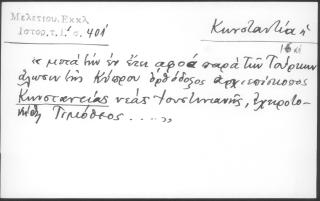 Μελετίου, Εκκλ.
Ιστορ. τ. Γ΄. σ. 401
Κωνσταντία ἡ
« μετὰ τὴν ἐν ἔτει αφοα παρὰ τῶν Τούρκων
ἅλωσιν τῆς Κύπρου ὀρθόδοξος ἀρχιεπίσκοπος
Κωνσταντείας νέας Ἰουστινιανῆς, ἐχειροτο-
νήθη Τιμόθεος . . . . »